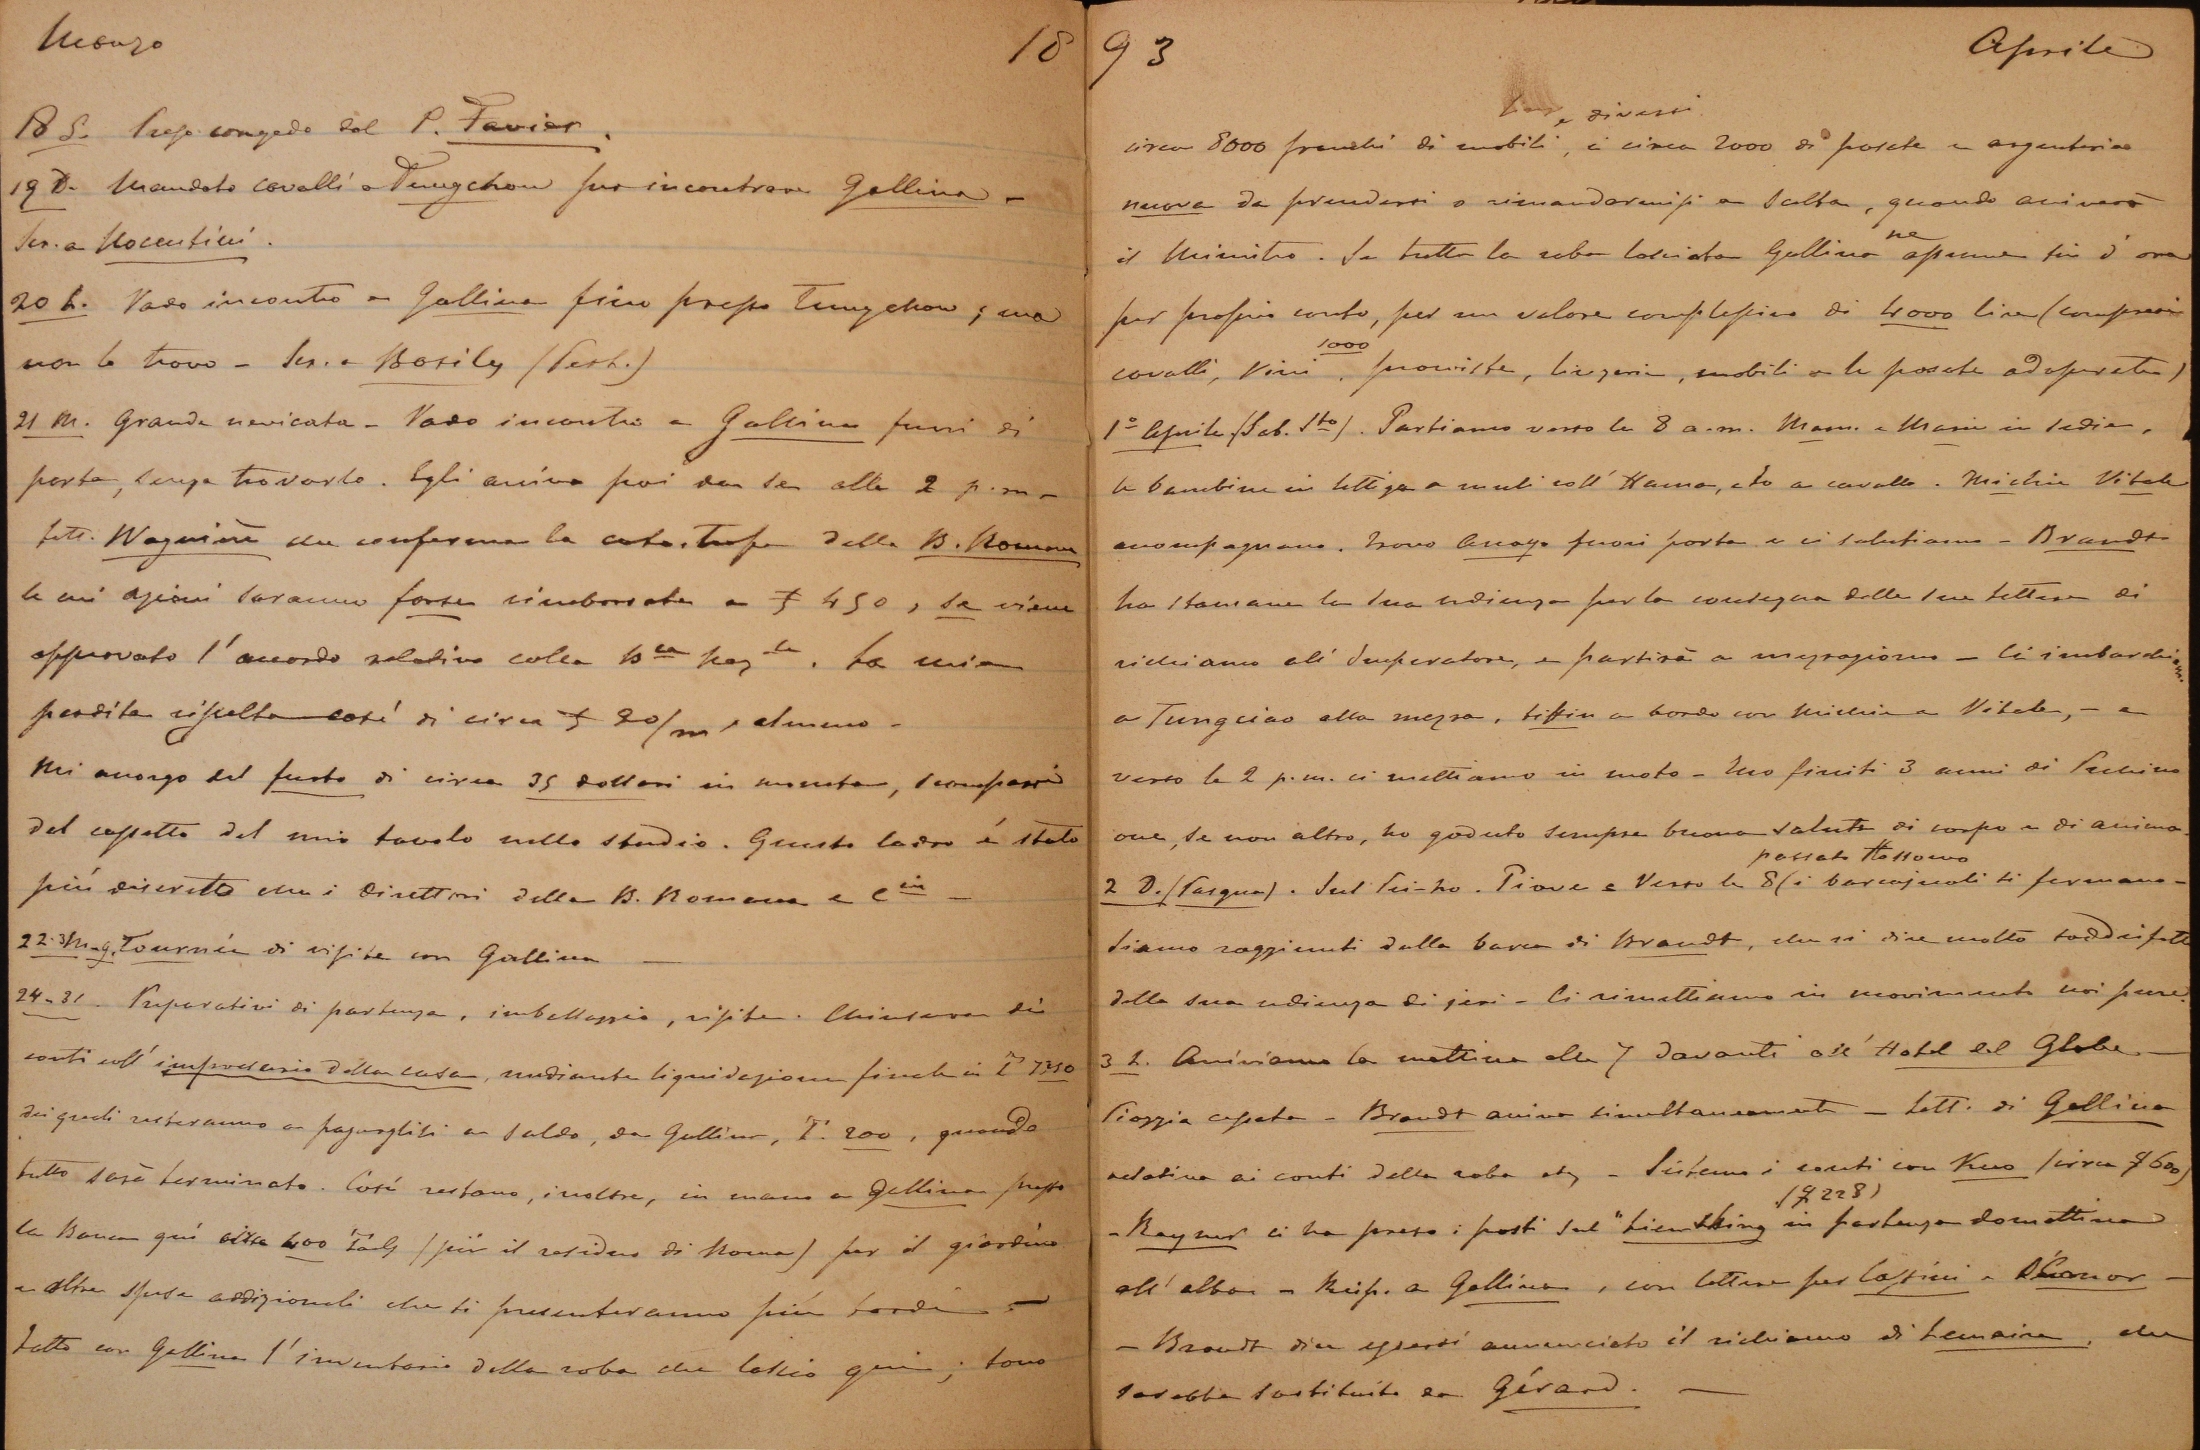 Marzo 18
18 S. Preso congedo dal P. Favier.
19 D. Mandato cavalli a Tungchow per incontrare Gallina –
Scr. a Nocentini.
20 L. Vado incontro a Gallina fino presso Tungchow; ma
non lo trovo – Scr. a Bosily (Pest.)
21 M. Grande nevicata – Vado incontro a Gallina fuori di
porta, senza trovarlo. Egli arriva poi da se alle 2 p.m. –
Lett. Wagnière che conferma la catastrofe della B. Romana
le mie azioni saranno forse rimborsate a £ 450, se viene
approvato l'accordo relativo colla Bca Nazle. La mia
perdita risulta così di circa £ 20/m, almeno –
Mi accorgo del furto di circa 35 dollari in moneta, scomparsi
dal cassetto del mio tavolo nello studio. Questo ladro é stato
più discreto che i direttori della B. Romana e Cia –
22.3 M-g. Tournée di visite con Gallina –
24-31. Preparativi di partenza, imballaggio, visite. Chiusura dei
conti coll' impresario della casa, mediante liquidazione finale in T 7350
dei quali resteranno a pagarglisi a saldo, da Gallina, T. 200, quando
tutto sarà terminato. Così restano, inoltre, in mano a Gallina presso
la Banca quì circa 400 Taels (più il residuo di Roma) per il giardino
e altre spese addizionali che si presenteranno più tardi –
Fatto con Gallina l'inventario della roba che lascio qui; sono
93 Aprile
e diversi
circa 8000 franchi di mobili, e circa 2000 di posate e argenteria
nuova da prendersi o rimandarmisi a Salta, quando arriverà
il Ministro. Di tutta la roba lasciata Gallina ne assume sin d'ora
per proprio conto, per un valore complessivo di 4000 lire (compresi
cavalli, vini 1000, provviste, lingeria, mobili e le posate adoperate)
1° Aprile (Sab. Sto). Partiamo verso le 8 a.m. Mam. e Marie in sedia,
le bambine in lettiga a muli coll' Hama, ed io a cavallo. Michie Vitale
accompagnano. Trovo fuori porta e ci salutiamo – Brandt
ha stamane la sua udienza per la consegna delle sue lettere di
richiamo all' Imperatore, e partirà a mezzogiorno – Ci imbarchiam.
a Tungciao alla mezza, tiffin a bordo con Michie e Vitale, – e
verso le 2 p.m. ci mettiamo in moto – Ho finiti 3 anni di Pechino
ove, se non altro, ho goduto sempre buona salute di corpo e di animo.
passato Hossowo
2 D. (Pasqua). Sul Pei-ho. Piove e verso le 8 (i barcajuoli si fermano –
siamo raggiunti dalla barca di Brandt, che si dice molto soddisfatto
della sua udienza di jeri – Ci rimettiamo in movimento noi pure.
3 L. Arriviamo la mattina alle 7 davanti all' Hotel del Globe –
Pioggia cessata – Brandt arriva simultaneamente – Lett. di Gallina
relativa ai conti della roba etc – Sistemo i conti con Kuo (circa $ 600)
($ 228)
– Rayner ci ha preso i posti sul "Lienshing in partenza domattina
all' alba – Risp. a Gallina, con lettere per Cassini e O'Conor –
– Brandt dice essersi annunciato il richiamo di Lemaire, che
sarebbe sostituito da Gérard. –